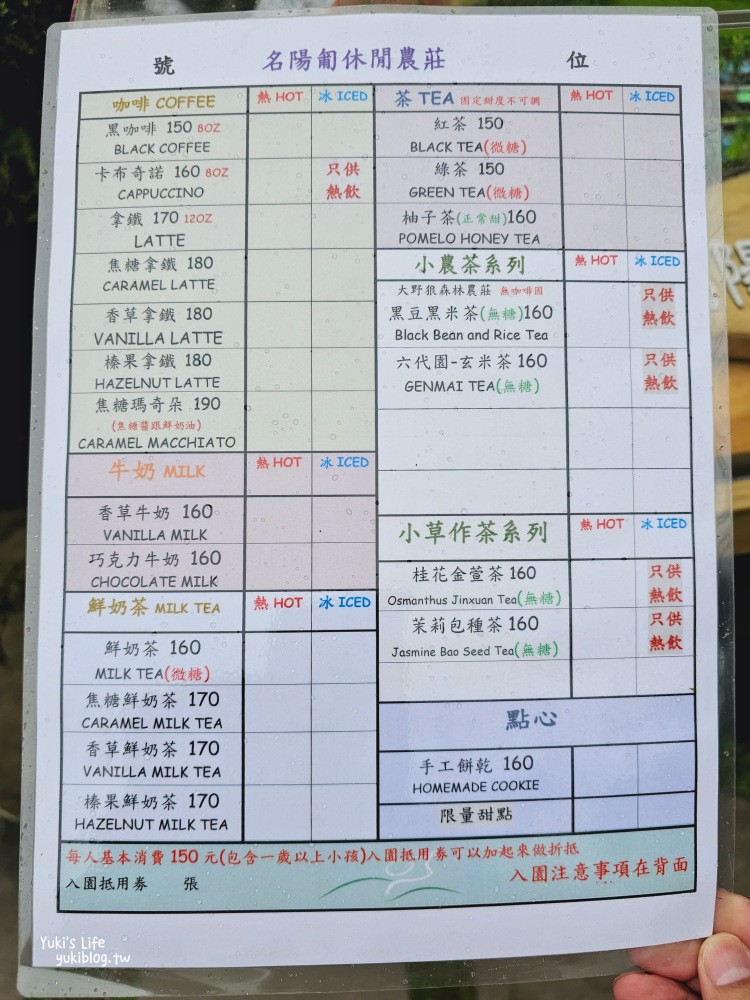 號 名陽匍休閒農莊 位
咖啡 COFFEE 熱 HOT 冰 ICED
黑咖啡 150 8OZ
BLACK COFFEE
卡布奇諾 160 8OZ 只供
CAPPUCCINO 熱飲
拿鐵 170 12OZ
LATTE
焦糖拿鐵 180
CARAMEL LATTE
香草拿鐵 180
VANILLA LATTE
榛果拿鐵 180
HAZELNUT LATTE
焦糖瑪奇朵 190
(焦糖醬跟鮮奶油)
CARAMEL MACCHIATO
牛奶 MILK 熱 HOT 冰 ICED
香草牛奶 160
VANILLA MILK
巧克力牛奶 160
CHOCOLATE MILK
鮮奶茶 MILK TEA 熱 HOT 冰 ICED
鮮奶茶 160
MILK TEA(微糖)
焦糖鮮奶茶 170
CARAMEL MILK TEA
香草鮮奶茶 170
VANILLA MILK TEA
榛果鮮奶茶 170
HAZELNUT MILK TEA
茶 TEA 固定甜度不可調 熱 HOT 冰 ICED
紅茶 150
BLACK TEA(微糖)
綠茶 150
GREEN TEA(微糖)
柚子茶(正常甜)160
POMELO HONEY TEA
小農茶系列 熱 HOT 冰 ICED
大野狼森林農莊 無咖啡因 只供
黑豆黑米茶(無糖)160 熱飲
Black Bean and Rice Tea
六代園-玄米茶 160 只供
GENMAI TEA(無糖) 熱飲
小草作茶系列 熱 HOT 冰 ICED
桂花金萱茶 160 只供
Osmanthus Jinxuan Tea(無糖) 熱飲
茉莉包種茶 160 只供
Jasmine Bao Seed Tea(無糖) 熱飲
點心
手工餅乾 160
HOMEMADE COOKIE
限量甜點
每人基本消費 150 元(包含一歲以上小孩)入園抵用券可以加起來做折抵
入園抵用券 張 入園注意事項在背面
Yuki's Life
yukiblog.tw